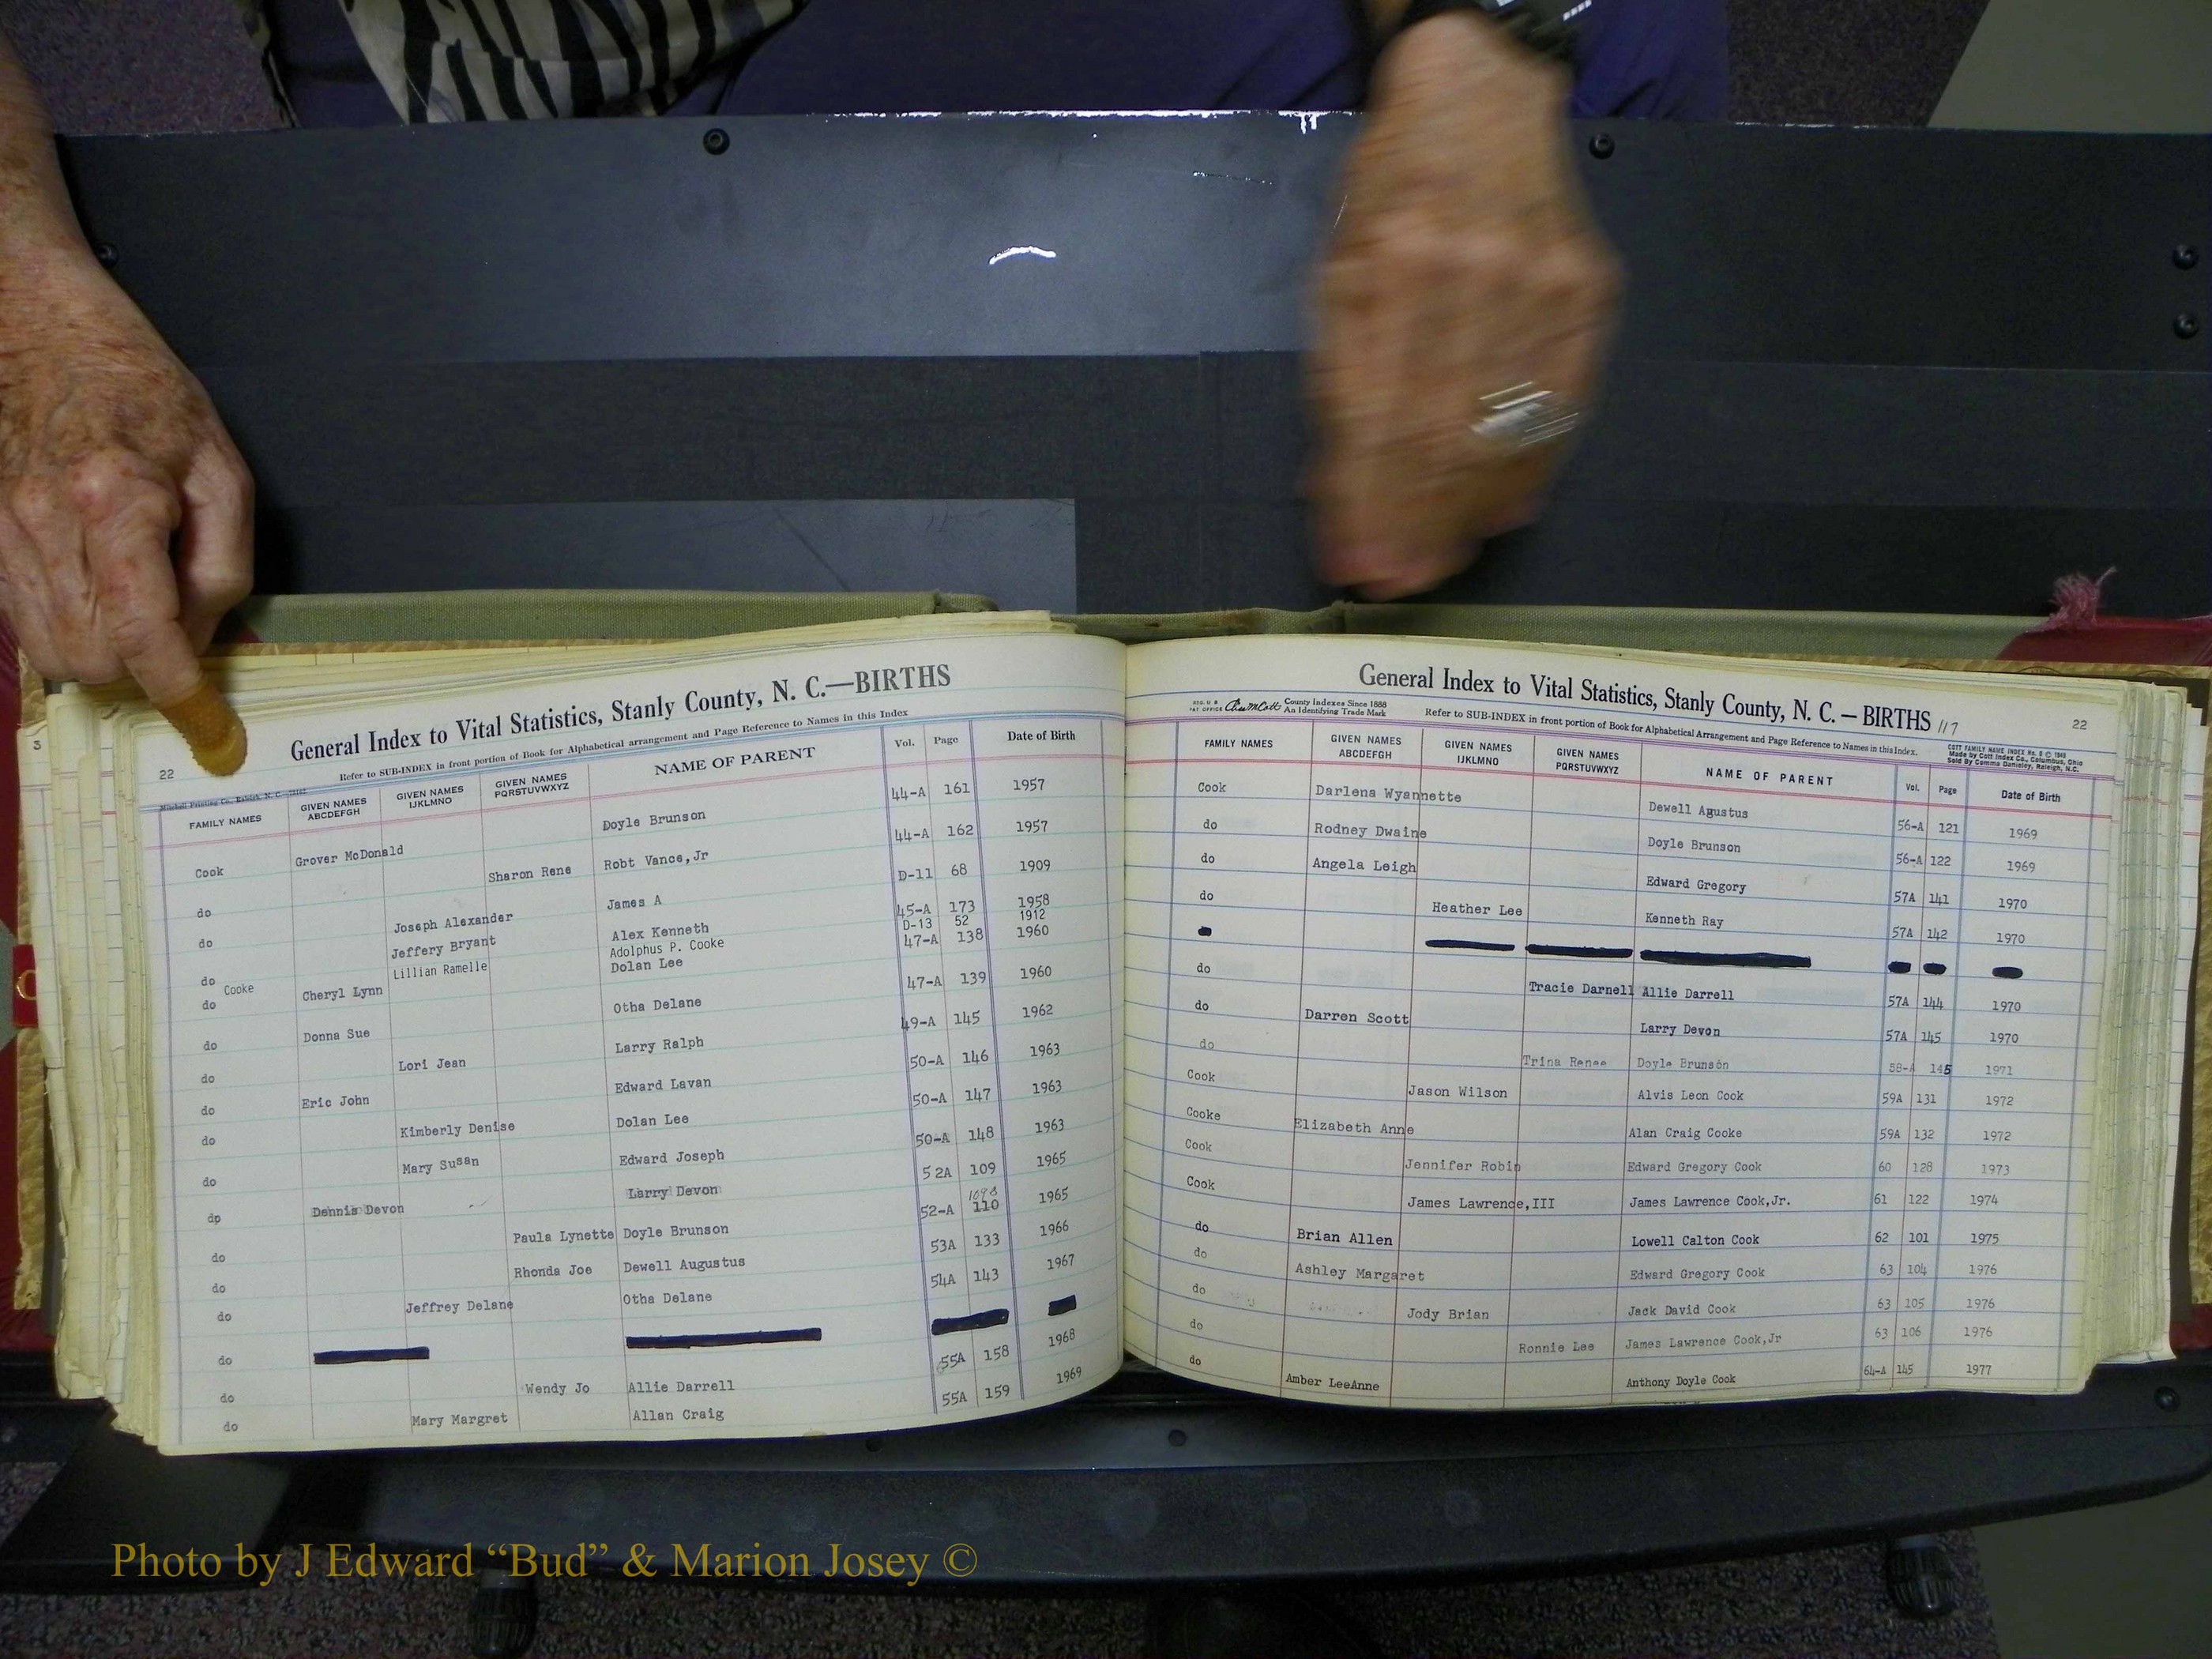 General Index to Vital Statistics, Stanly County, N. C.—BIRTHS
22
Refer to SUB-INDEX in front portion of Book for Alphabetical arrangement and Page Reference to Names in this Index
FAMILY NAMES GIVEN NAMES ABCDEFGH GIVEN NAMES IJKLMNO GIVEN NAMES PQRSTUVWXYZ NAME OF PARENT Vol. Page Date of Birth
Cook Grover McDonald Doyle Brunson 44-A 161 1957
do Sharon Rene Robt Vance,Jr 44-A 162 1957
do Joseph Alexander James A D-11 68 1909
do Jeffery Bryant Alex Kenneth 45-A 173 1958
Cooke Lillian Ramelle Adolphus P. Cooke D-13 52 1912
do Cheryl Lynn Dolan Lee 47-A 138 1960
do Donna Sue Otha Delane 47-A 139 1960
do Lori Jean Larry Ralph 49-A 145 1962
do Eric John Edward Lavan 50-A 146 1963
do Kimberly Denise Dolan Lee 50-A 147 1963
do Mary Susan Edward Joseph 50-A 148 1963
dp Dennis Devon Larry Devon 52A 109 1965
do Paula Lynette Doyle Brunson 52-A 109½ 110 1965
do Rhonda Joe Dewell Augustus 53A 133 1966
do Jeffrey Delane Otha Delane 54A 143 1967
do
do Wendy Jo Allie Darrell 55A 158 1968
do Mary Margret Allan Craig 55A 159 1969
General Index to Vital Statistics, Stanly County, N. C. — BIRTHS 117
22
County Indexes Since 1888
An Identifying Trade Mark
Refer to SUB-INDEX in front portion of Book for Alphabetical Arrangement and Page Reference to Names in this Index.
COTT FAMILY NAME INDEX
Made by Cott Index Co., Columbus, Ohio
FAMILY NAMES GIVEN NAMES ABCDEFGH GIVEN NAMES IJKLMNO GIVEN NAMES PQRSTUVWXYZ NAME OF PARENT Vol. Page Date of Birth
Cook Darlena Wyannette Dewell Agustus 56-A 121 1969
do Rodney Dwaine Doyle Brunson 56-A 122 1969
do Angela Leigh Edward Gregory 57A 141 1970
do Heather Lee Kenneth Ray 57A 142 1970
do Tracie Darnell Allie Darrell 57A 144 1970
do Darren Scott Larry Devon 57A 145 1970
do Trina Renee Doyle Brunson 58-A 145 1971
Cook Jason Wilson Alvis Leon Cook 59A 131 1972
Cooke Elizabeth Anne Alan Craig Cooke 59A 132 1972
Cook Jennifer Robin Edward Gregory Cook 60 128 1973
Cook James Lawrence,III James Lawrence Cook,Jr. 61 122 1974
do Brian Allen Lowell Calton Cook 62 101 1975
do Ashley Margaret Edward Gregory Cook 63 104 1976
do Jody Brian Jack David Cook 63 105 1976
do Ronnie Lee James Lawrence Cook,Jr 63 106 1976
do Amber LeeAnne Anthony Doyle Cook 64-A 145 1977
Photo by J Edward “Bud” & Marion Josey ©